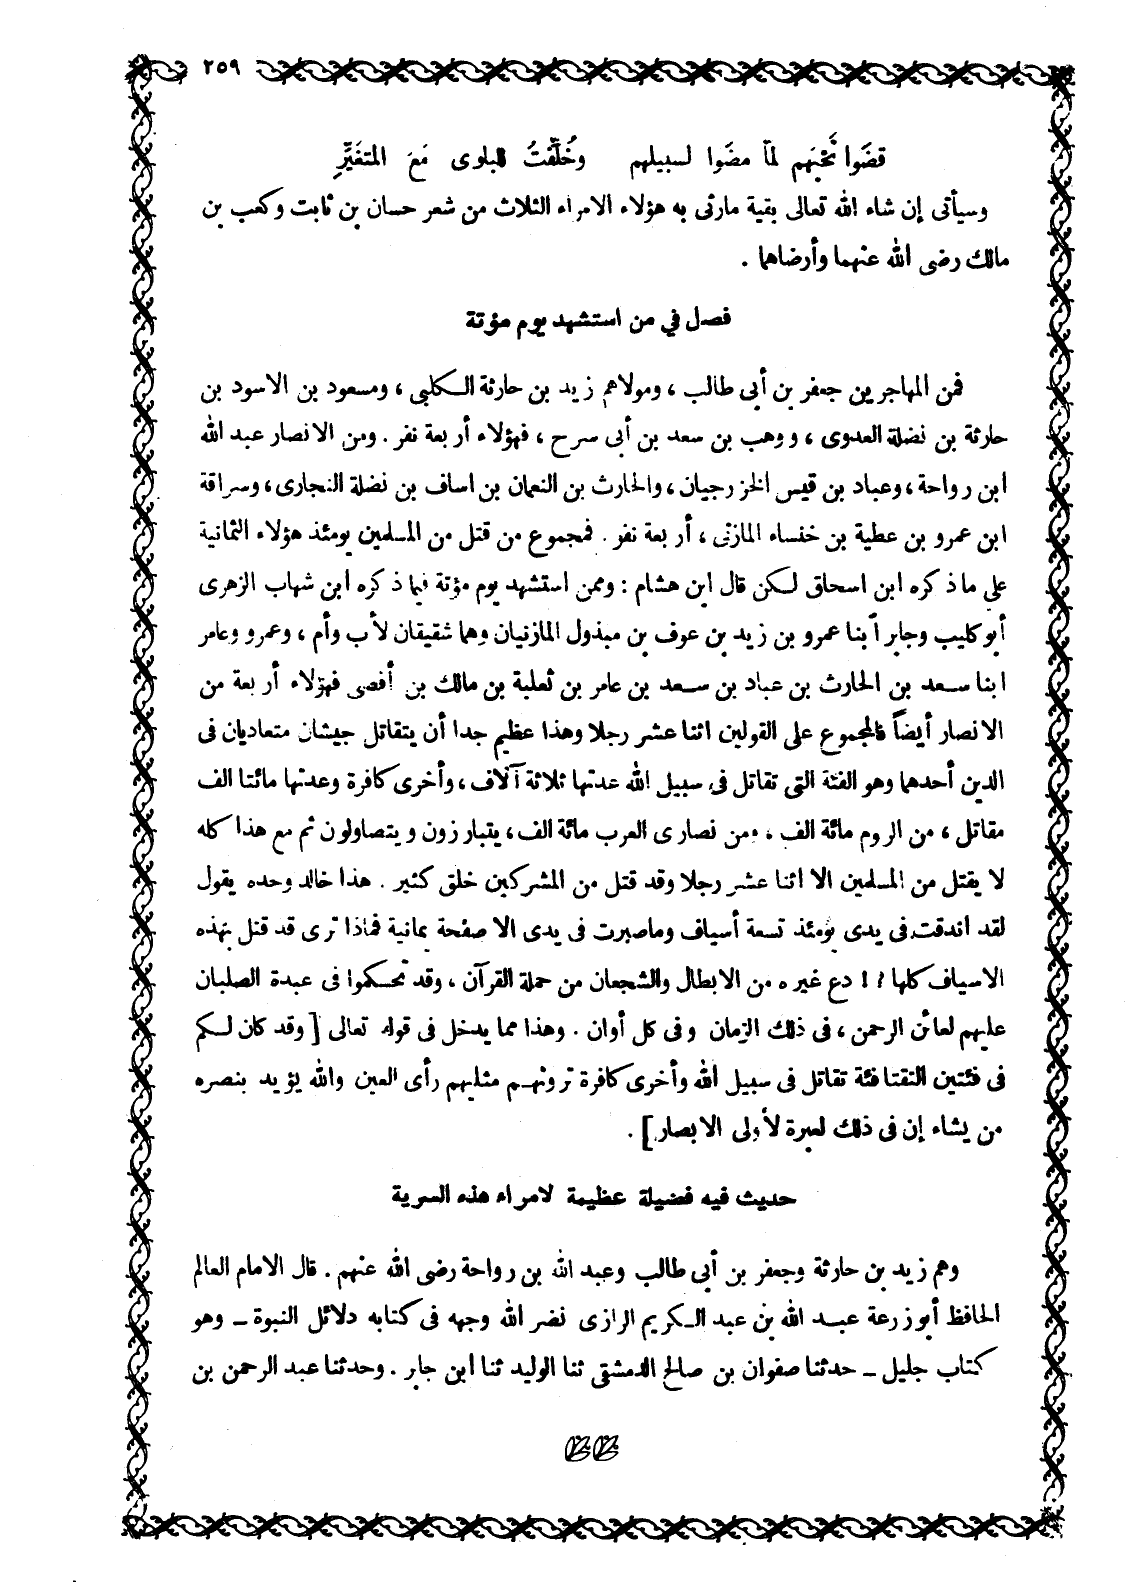 ٢٥٩
قضَوا نَحْبَهم لمّا مضَوا لسبيلهم وخُلِّفتُ للبلوى مَعَ المتغَيِّرِ
وسيأتى إن شاء الله تعالى بقية مارثى به هؤلاء الامراء الثلاث من شعر حسان بن ثابت وكعب بن
مالك رضى الله عنهما وأرضاهما .
فصل في من استشهد يوم مؤتة
فمن المهاجرين جعفر بن أبى طالب ، ومولاهم زيد بن حارثة الكلبى ، ومسعود بن الاسود بن
حارثة بن نضلة العدوى ، ووهب بن سعد بن أبى سرح ، فهؤلاء أربعة نفر . ومن الانصار عبد الله
ابن رواحة ، وعباد بن قيس الخزرجيان ، والحارث بن النعمان بن اساف بن نضلة النجارى ، وسراقة
ابن عمرو بن عطية بن خنساء المازنى ، أربعة نفر . فمجموع من قتل من المسلمين يومئذ هؤلاء الثمانية
على ما ذكره ابن اسحاق لكن قال ابن هشام : وممن استشهد يوم مؤتة فيما ذكره ابن شهاب الزهرى
أبو كليب وجابر ابنا عمرو بن زيد بن عوف بن مبذول المازنيان وهما شقيقان لأب وأم ، وعمرو وعامر
ابنا سعد بن الحارث بن عباد بن سعد بن عامر بن ثعلبة بن مالك بن أفصى فهؤلاء أربعة من
الانصار أيضاً فالمجموع على القولين اثنا عشر رجلا وهذا عظيم جدا أن يتقاتل جيشان متعاديان فى
الدين أحدهما وهو الفئة التى تقاتل فى سبيل الله عدتها ثلاثة آلاف ، وأخرى كافرة وعدتها مائتا الف
مقاتل ، من الروم مائة الف ، ومن نصارى العرب مائة الف ، يتبارزون ويتصاولون ثم مع هذا كله
لا يقتل من المسلمين الا اثنا عشر رجلا وقد قتل من المشركين خلق كثير . هذا خالد وحده يقول
لقد اندقت فى يدى يومئذ تسعة أسياف وماصبرت فى يدى الا صفحة يمانية فماذا ترى قد قتل بهذه
الاسياف كلها ؟! دع غيره من الابطال والشجعان من حملة القرآن ، وقد تحكموا فى عبدة الصلبان
عليهم لعائن الرحمن ، فى ذلك الزمان وفى كل أوان . وهذا مما يدخل فى قوله تعالى [ وقد كان لكم
فى فئتين التقتا فئة تقاتل فى سبيل الله وأخرى كافرة ترونهم مثليهم رأى العين والله يؤيد بنصره
من يشاء إن فى ذلك لعبرة لأولى الابصار ] .
حديث فيه فضيلة عظيمة لامراء هذه السرية
وهم زيد بن حارثة وجعفر بن أبى طالب وعبد الله بن رواحة رضى الله عنهم . قال الامام العالم
الحافظ أبو زرعة عبد الله بن عبد الكريم الرازى نضر الله وجهه فى كتابه دلائل النبوة ـ وهو
كتاب جليل ـ حدثنا صفوان بن صالح الدمشقى ثنا الوليد ثنا ابن جابر . وحدثنا عبد الرحمن بن